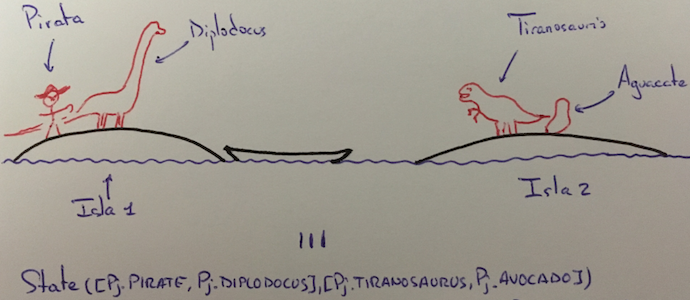 Pirata
Diplodocus
Tiranosauris
Aguacate
Isla 1
Isla 2
State([Pj.PIRATE, Pj.DIPLODOCUS],[Pj.TIRANOSAURUS, Pj.AVOCADO])